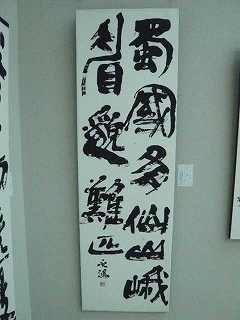 蜀國多仙山峨
眉邈難匹